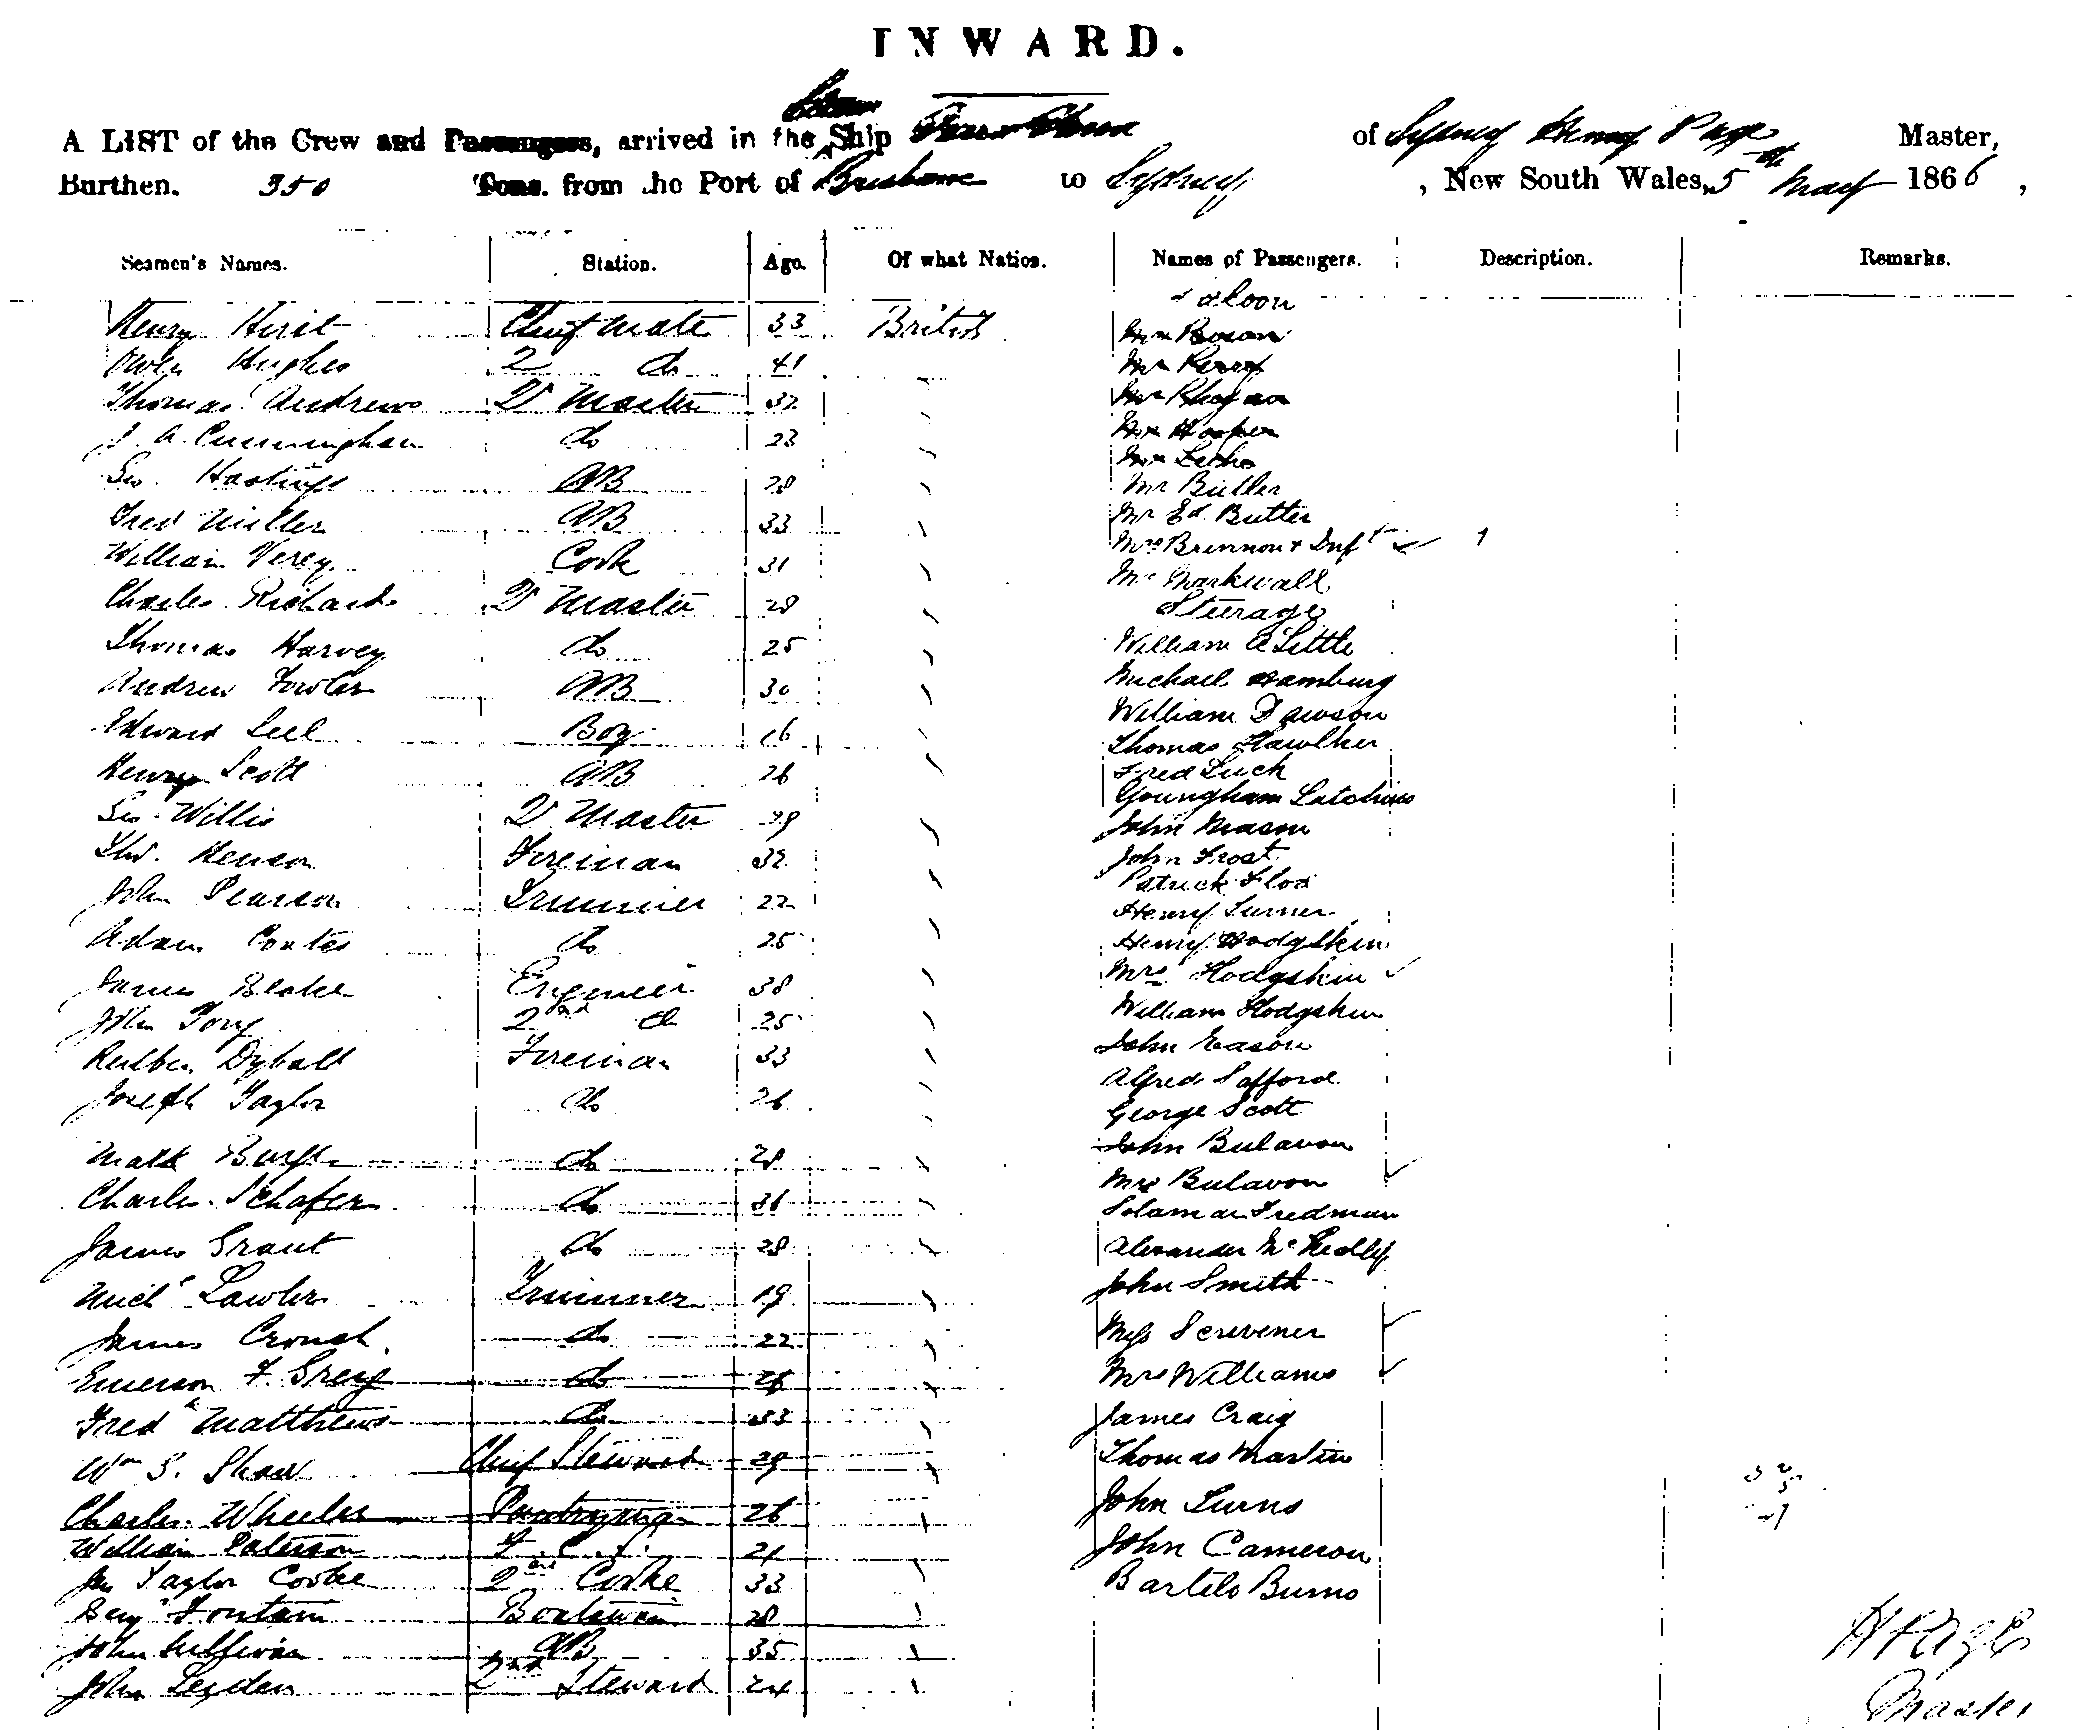 INWARD.
A LIST of the Crew and Passengers, arrived in the Steam Ship of Sydney Henry Page Master,
Burthen. 350 Tons. from the Port of Brisbane to Sydney, New South Wales, 5th May 1866,
Seamen's Names. Station. Age. Of what Nation. Names of Passengers. Description. Remarks.
Saloon
Henry Hirst Chief Mate 33 British Mr Bowan
Owen Hughes 2 do 41 Mr Perry
Thomas Andrews Qr Master 32 Mr
J. A. Cunningham do 23 Mr Hooper
Geo. Hastings AB 28 Mr
Mr Butler
Fred Miller AB 33 Mr Ed. Butler
William Verey Cook 31 Mrs Brennon & Inft 1
Mr Markwall
Charles Richards Qr Master 28 Steerage
Thomas Harvey do 25 William A Little
Andrew Fowler AB 30 Michael Hamburg
Edward Leel Boy 16 William Dawson
Thomas Hawlker
Henry Scott AB 26 Fred Luck
Youngham
Geo. Willis Qr Master 29 John Mason
Thos. Henson Fireman 32 John Frost
John Pearson Trimmer 22 Patrick Flood
Henry Turner
Adam Coates do 25 Henry Hodgskin
James Blake Engineer 38 Mrs Hodgskin
John Tory 2nd do 25 William Hodgskin
Reuben Dybalt Fireman 33 John Eason
Joseph Taylor do 26 Alfred Safford
George Scott
Matt do 28 John Bulavon
Charles Schafer do 36 Mrs Bulavon
Solaman Fredman
James Grant do 28 Alexander McKedley
Michl Lawler Trimmer 19 John Smith
James Crouch do 22 Miss Scrivener
Emerson F. Grey do 28 Mrs Williams
Fredk Matthews do 33 James Craig
Wm S. Shaw Chief Steward 29 Thomas Martin
Charles Wheeler Pantryman 26 John Turns
William Paterson F. C. S. 21 John Cameron
Jno Taylor Cooke 2nd Cooke 33 Bartels Burns
Benjn Fontain Boatswain 28
John Sullivan AB 35
John Leyden 2nd Steward 24
H Page
Master